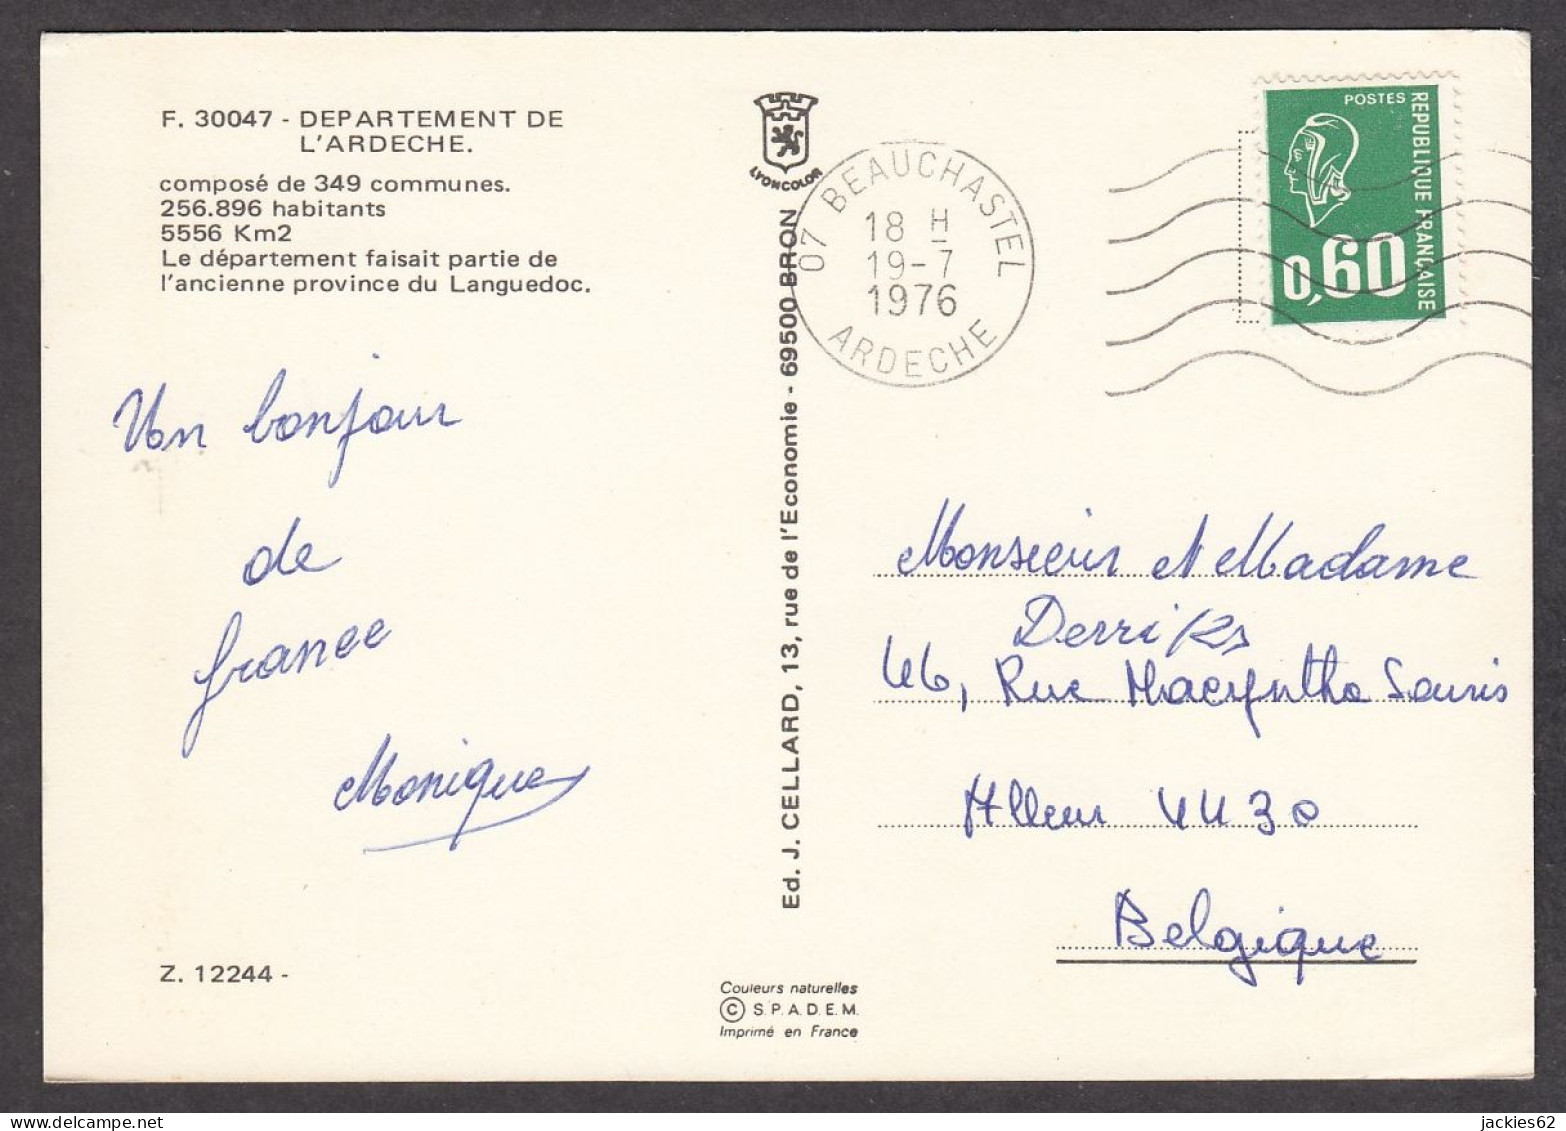 F. 30047 - DEPARTEMENT DE
L'ARDECHE.
composé de 349 communes.
256.896 habitants
5556 Km2
Le département faisait partie de
l'ancienne province du Languedoc.
Un bonjour
de
france
Monique
Z. 12244 -
LYONCOLOR
Ed. J. CELLARD, 13, rue de l'Economie - 69500 BRON
Couleurs naturelles
© S.P.A.D.E.M.
Imprimé en France
07 BEAUCHASTEL
18 H
19-7
1976
ARDECHE
POSTES
REPUBLIQUE FRANÇAISE
0,60
Monsieur et Madame
Derriks
46, Rue
Alleur 4430
Belgique
jackies62